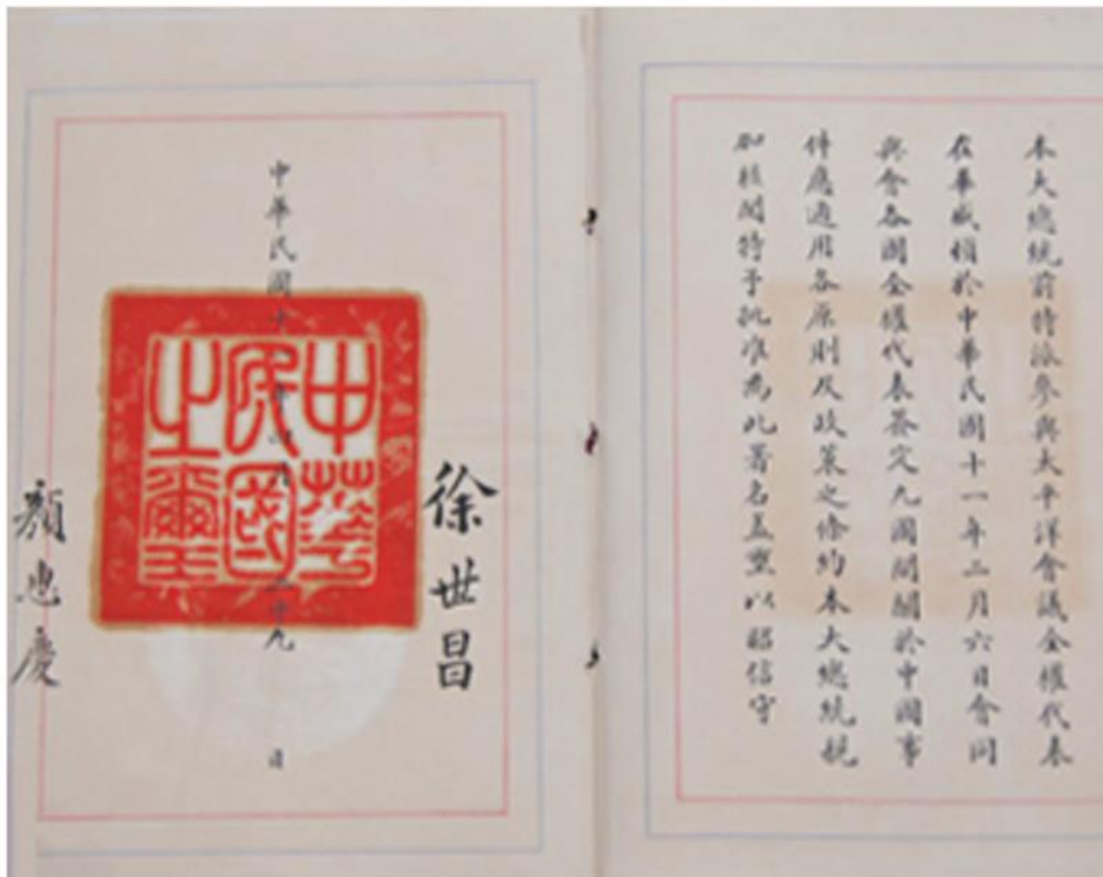 本大總統前特派參與太平洋會議全權代表
在華盛頓於中華民國十一年二月六日會同
與會各國全權代表簽定九國間關於中國事
件應適用各原則及政策之條約本大總統親
加核閱特予批准為此署名蓋璽以昭信守
徐世昌
中華民國十 年四月二十九日
中華
民國
之璽
顏惠慶